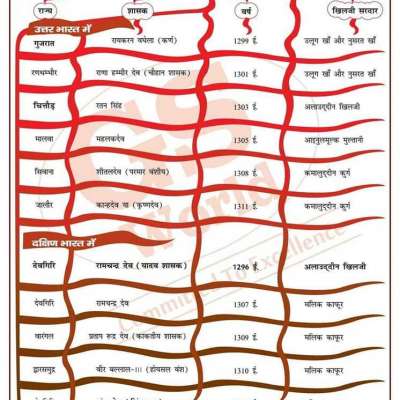 राज्य शासक वर्ष खिलजी सरदार
उत्तर भारत में
गुजरात रायकरन वघेला (कर्ण) 1299 ई. उलूग खाँ और नुसरत खाँ
रणथम्भौर राणा हम्मीर देव (चौहान शासक) 1301 ई. उलूग खाँ और नुसरत खाँ
चित्तौड़ रतन सिंह 1303 ई. अलाउद्दीन खिलजी
मालवा महलकदेव 1305 ई. आइनुलमूल्क मुल्तानी
सिवाना शीतलदेव (परमार वंशीय) 1308 ई. कमालुद्दीन कुर्ग
जालौर कान्हदेव या (कृष्णदेव) 1311 ई. कमालुद्दीन कुर्ग
दक्षिण भारत में
देवगिरि रामचन्द्र देव (यादव शासक) 1296 ई. अलाउद्दीन खिलजी
देवगिरि रामचन्द्र देव 1307 ई. मलिक काफूर
वारंगल प्रताप रूद्र देव (काकतीय शासक) 1309 ई. मलिक काफूर
द्वारसमुद्र वीर बल्लाल-III (होयसल वंश) 1310 ई. मलिक काफूर
GS World
Committed To Excellence